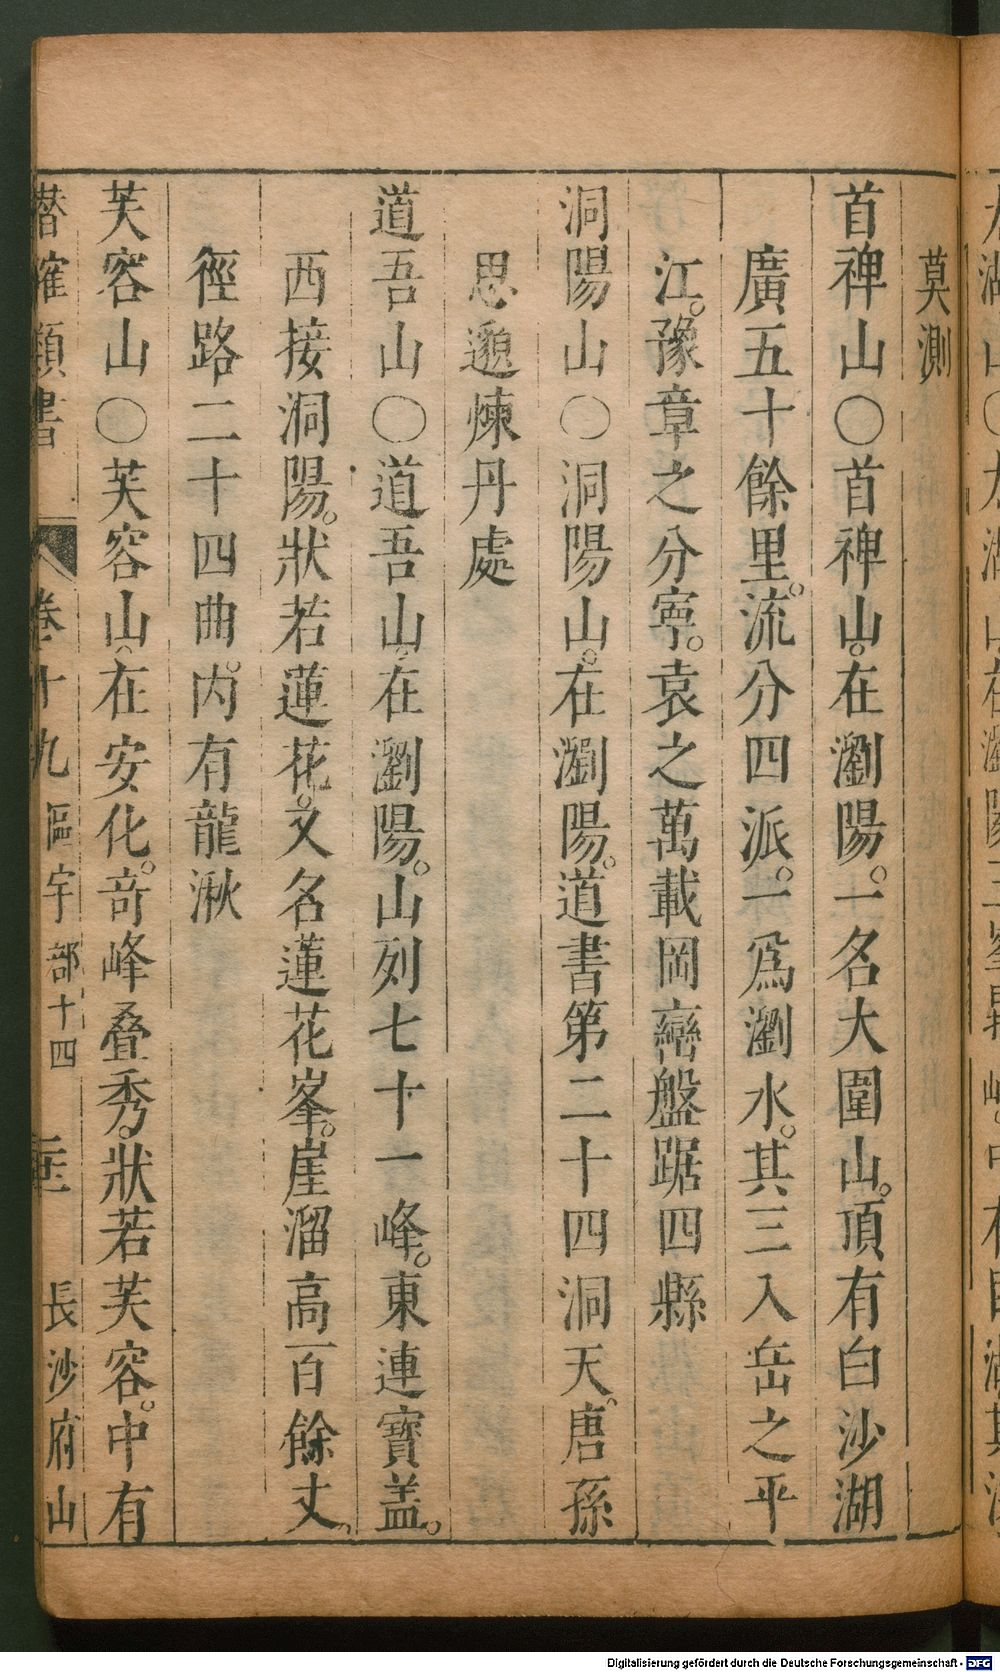 莫測
首禆山〇首禆山。在瀏陽。一名大圍山。頂有白沙湖
廣五十餘里。流分四派。一爲瀏水。其三入岳之平
江。豫章之分寧。袁之萬載岡巒盤踞四縣
洞陽山〇洞陽山。在瀏陽。道書第二十四洞天。唐孫
思邈煉丹處
道吾山〇道吾山。在瀏陽。山列七十一峰。東連寶盖。
西接洞陽。狀若蓮花。又名蓮花峯。崖溜高百餘丈。
徑路二十四曲。内有龍湫
芙容山〇芙容山。在安化。奇峰叠秀。狀若芙容。中有
潛確類書 卷十九 區宇部十四 長沙府山
Digitalisierung gefördert durch die Deutsche Forschungsgemeinschaft - DFG